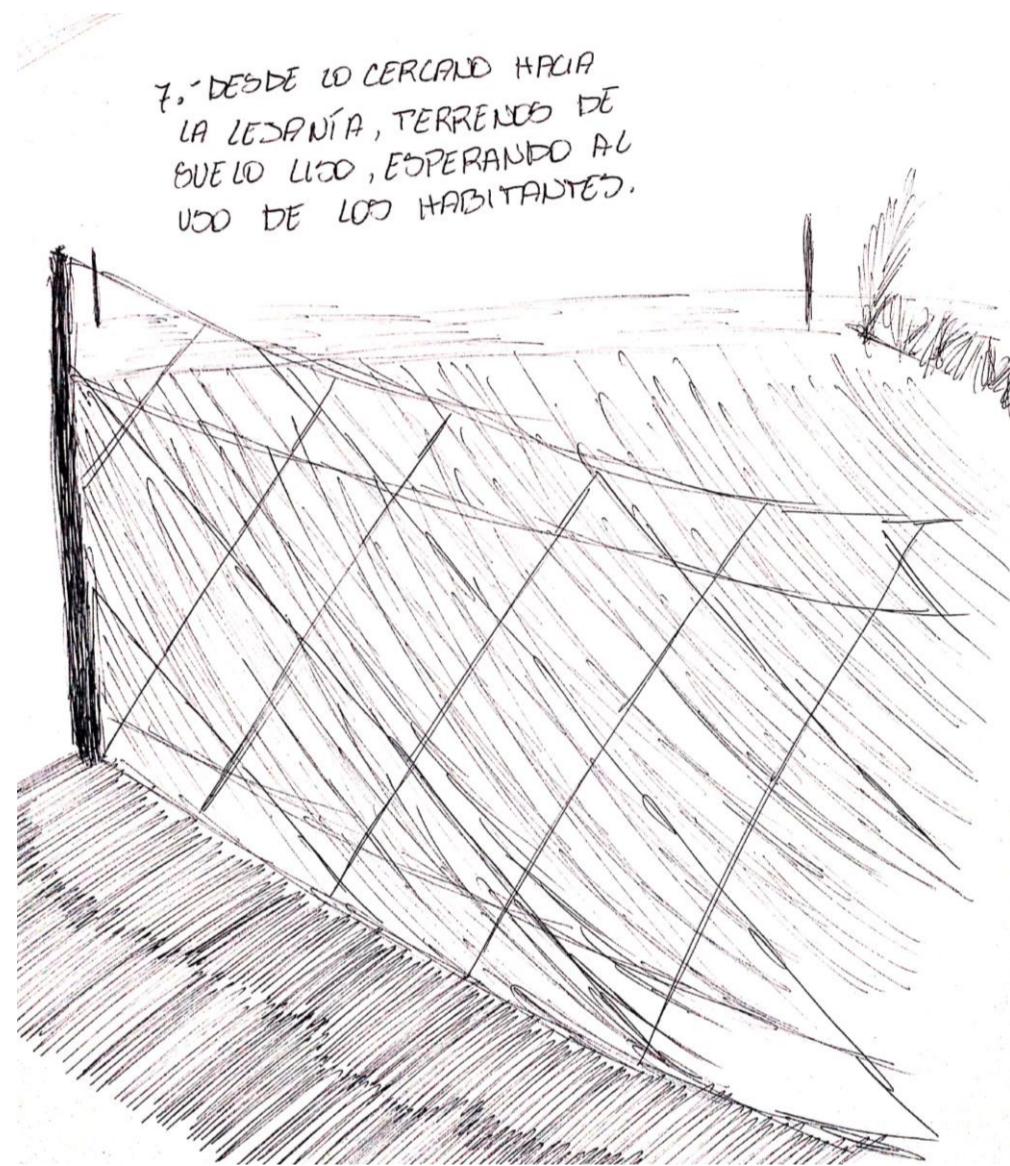 7.- DESDE LO CERCANO HACIA
LA LEJANÍA, TERRENOS DE
SUELO LISO, ESPERANDO AL
USO DE LOS HABITANTES.